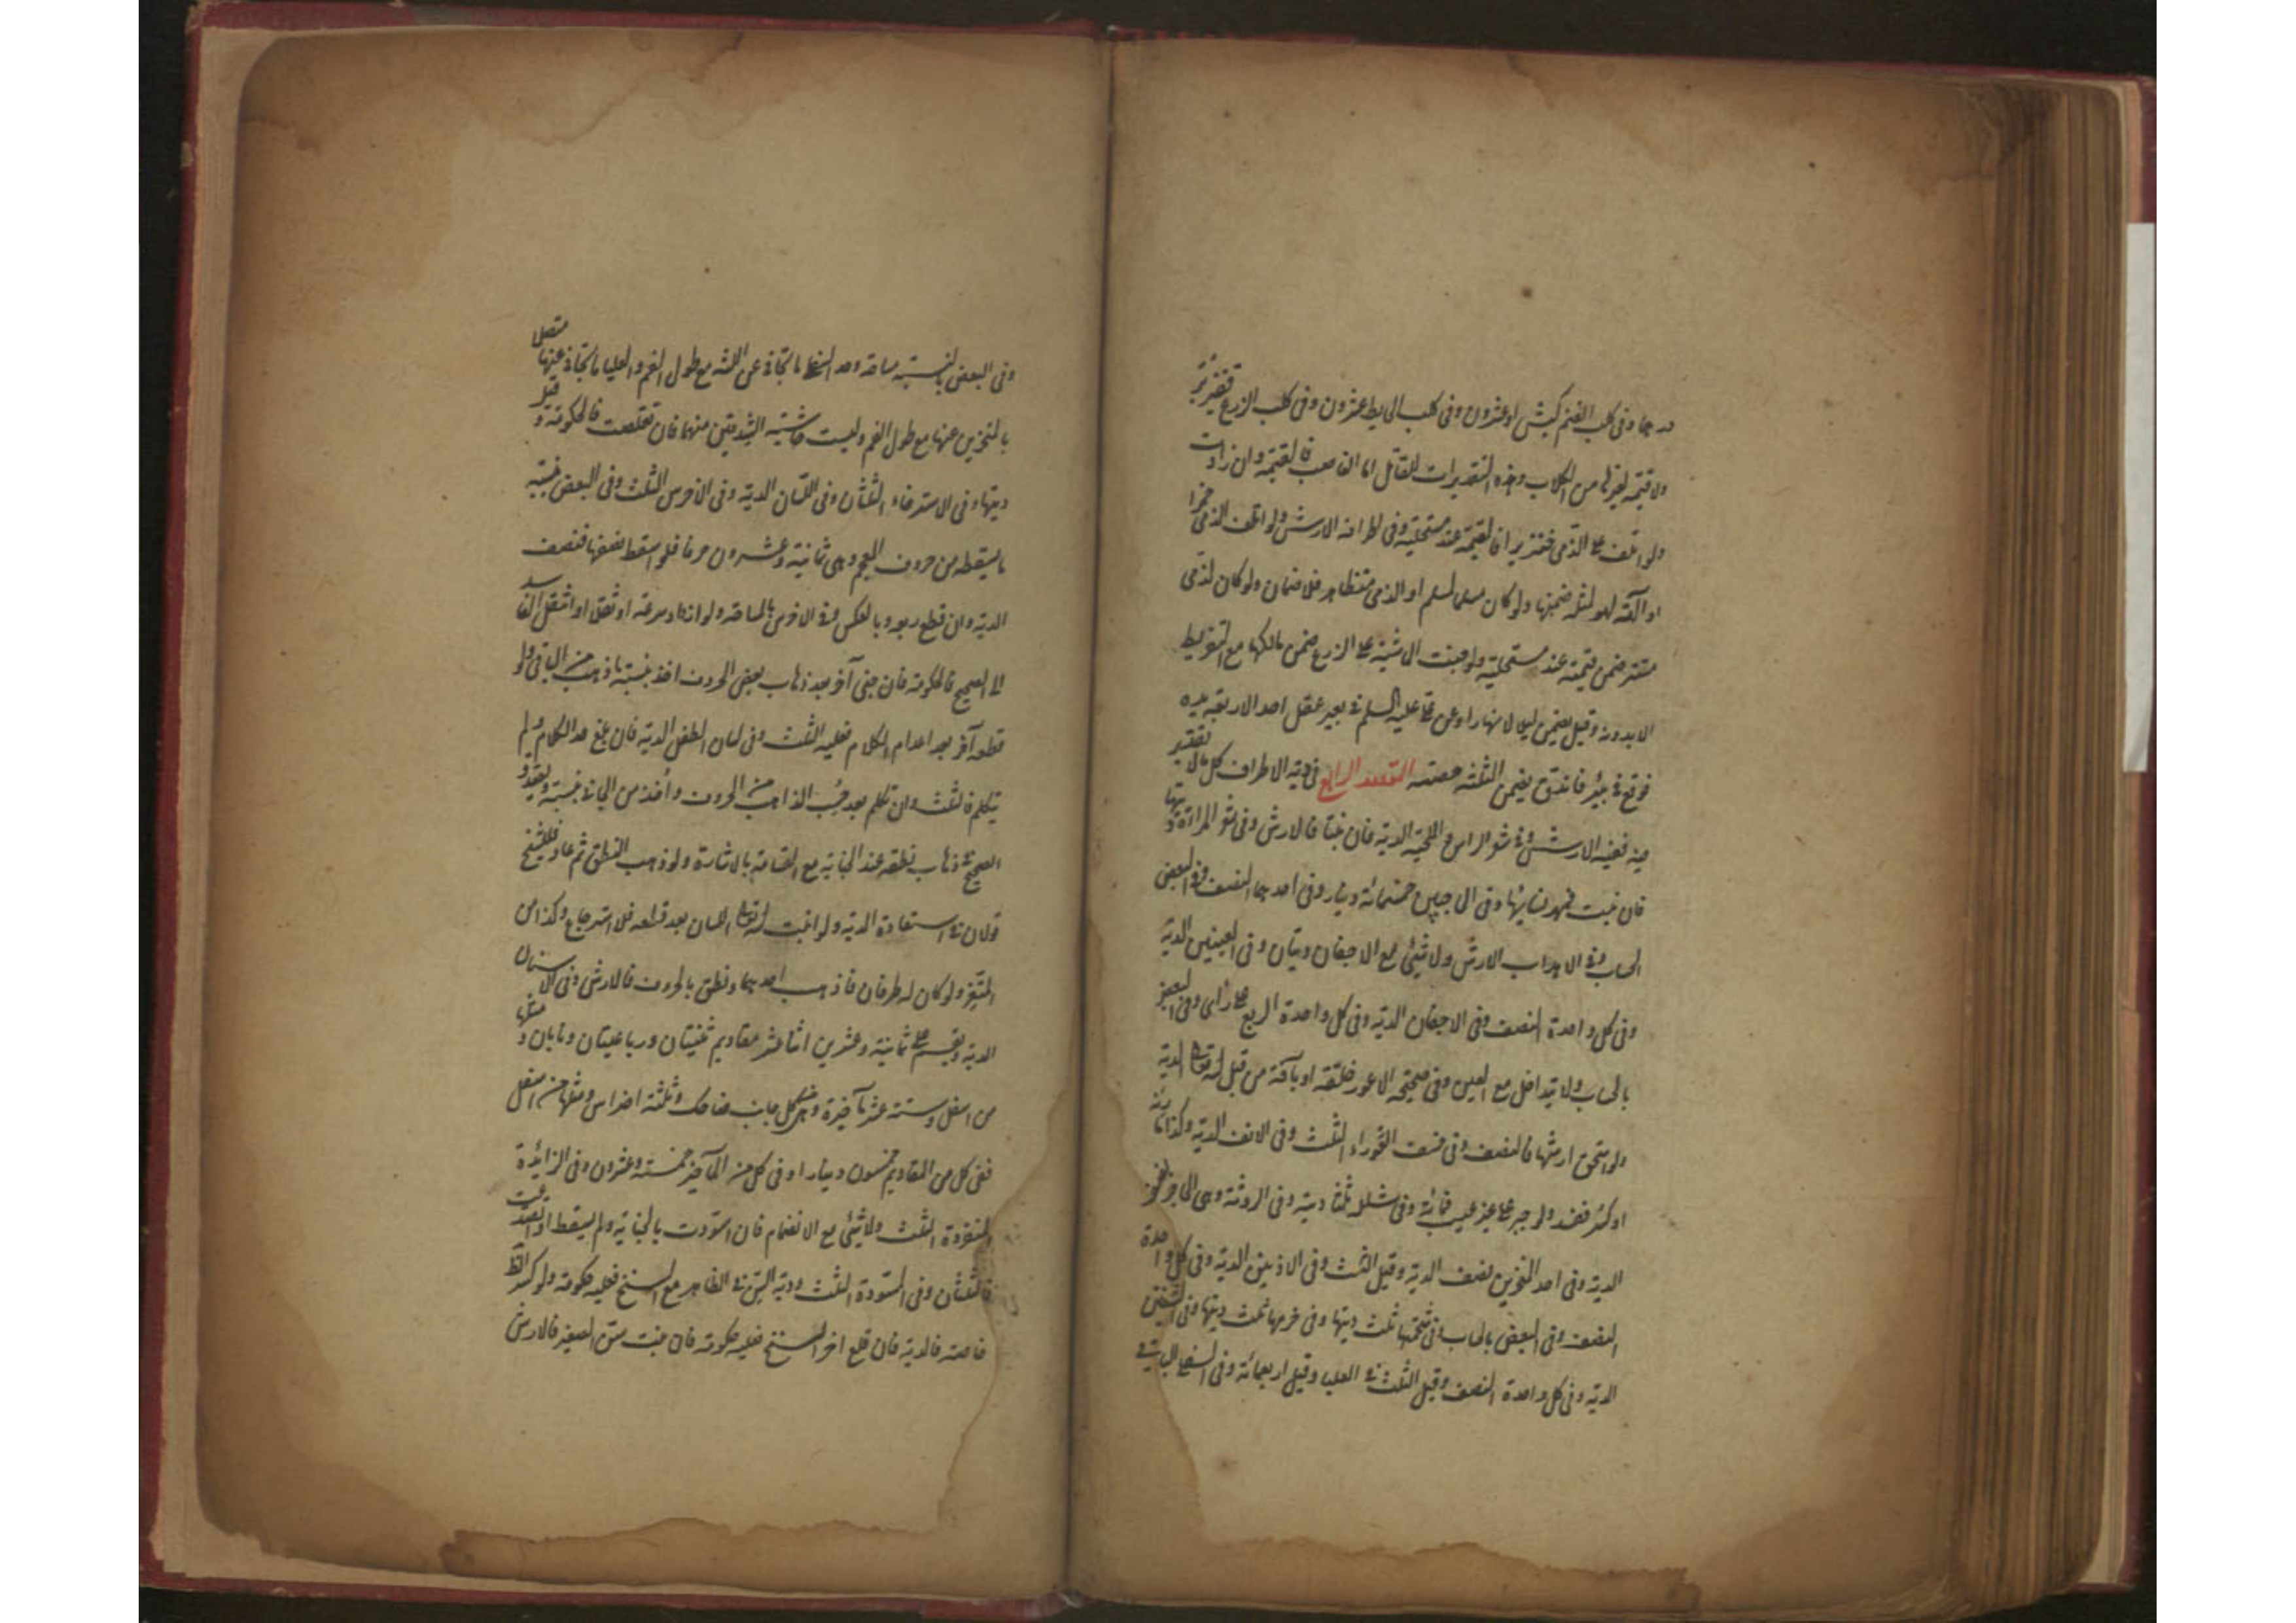 درهما وفى كلب الغنم كبش او عشرون وفى كلب الحايط عشرون وفى كلب الزرع قفيز بر
ولا قيمة لغيرها من الكلاب وهذه التقديرات للقاتل اما الغاصب فالقيمة وان زادت
ولو اتلف على الذمى خنزيرا فالقيمة عند مستحليه وفى اطرافه الارش ولو اتلف الذمى خمرا
او آلة لهو لمثله ضمنها ولو كان مسلما لمسلم او الذمى متظاهر فلا ضمان ولو كان لذمى
مستتر ضمن قيمته عند مستحليه ولو جنت الماشية على الزرع ضمن مالكها مع التفريط
لا بدونه وقيل يضمن ليلا لا نهارا وعن على عليه السلم فى بعير عقل احد الاربعة يده
فوقع فى بئر فاندق يضمن الثلثة حصته المقصد الرابع فى دية الاطراف كل ما لا تقدير
فيه ففيه الارش وفى شعر الراس او اللحية الدية فان نبتا فالارش وفى شعر المراة ديتها
فان نبت فمهر نسائها وفى الحاجبين خمسمائة دينار وفى احدهما النصف وفى البعض
الحساب وفى الاهداب الارش ولا شئ مع الاجفان ديتان وفى العينين الدية
وفى كل واحدة النصف وفى الاجفان الدية وفى كل واحدة الربع على راى وفى البعض
بالحساب ولا يتداخل مع العين وفى صحيحة الاعور خلقة او بآفة من قبل الله تعالى الدية
ولو استحق ارشها فالنصف وفى خسف العوراء الثلث وفى الانف الدية وكذا مارنه
او كسر ففسد ولو جبر على غير عيب فمائة وفى شلله ثلثا دية وفى الروثة وهى الحاجز نصف
الدية وفى احد المنخرين نصف الدية وقيل الثلث وفى الاذنين الدية وفى كل واحدة
النصف وفى البعض بالحساب وفى شحمتها ثلث ديتها وفى خرمها ثلث ديتها وفى الشفتين
الدية وفى كل واحدة النصف وقيل الثلث فى العليا وقيل اربعمائة وفى السفلى الباقى
وفى البعض بالنسبة مساحة وحد السفلى ما تجافى عن اللثة مع طول الفم والعليا ما تجافى عنها متصلا
بالمنخرين عنها مع طول الفم وليست حاشية الشدقين منهما فان تقلصت فالحكومة وقيل
ديتها وفى الاسترخاء الثلثان وفى اللسان الدية وفى الاخرس الثلث وفى البعض بنسبة
ما يسقط من حروف المعجم وهى ثمانية وعشرون حرفا فلو اسقط نصفها فنصف
الدية وان قطع ربعه وبالعكس وفى الاخرس بالمساحة ولو ازداد سرعة او ثقلا او انتقل الفاسد
الى الصحيح فالحكومة فان جنى آخر بعد ذهاب بعض الحروف اخذ بنسبة ما ذهب من الباقى ولو
قطعه آخر بعد اعدام الكلام فعليه الثلث وفى لسان الطفل الدية فان بلغ حد الكلام ولم
يتكلم فالثلث وان تكلم بعد حسب الذاهب من الحروف وأخذ من الجانى بنسبته ويصدق
الصحيح فى ذهاب نطقه عند الجناية مع القسامة بالاشارة ولو ذهب النطق ثم عاد فللشيخ
قولان فى استعادة الدية ولو انبت الله تعالى اللسان بعد قطعه فلا استرجاع وكذا سن
المثغر ولو كان له طرفان فاذهب احدهما ونطق بالحروف فالارش وفى الاسنان
الدية وتقسم على ثمانية وعشرين اثنا عشر مقاديم ثنيتان ورباعيتان ونابان ومثلها
من اسفل وستة عشر مآخير وهى فى كل جانب ضاحك وثلثة اضراس ومثلها من اسفل
ففى كل من المقاديم خمسون دينارا وفى كل من المآخير خمسة وعشرون وفى الزايدة
المنفردة الثلث ولا شئ مع الانضمام فان اسودت بالجناية ولم يسقط او تصدعت
فالثلثان وفى المسودة الثلث ودية السن فى الظاهر مع السنخ فعليه حكومة ولو كسر الظاهر
خاصة فالدية فان قلع اخر السنخ فعليه حكومة فان نبت سن الصغير فالارش